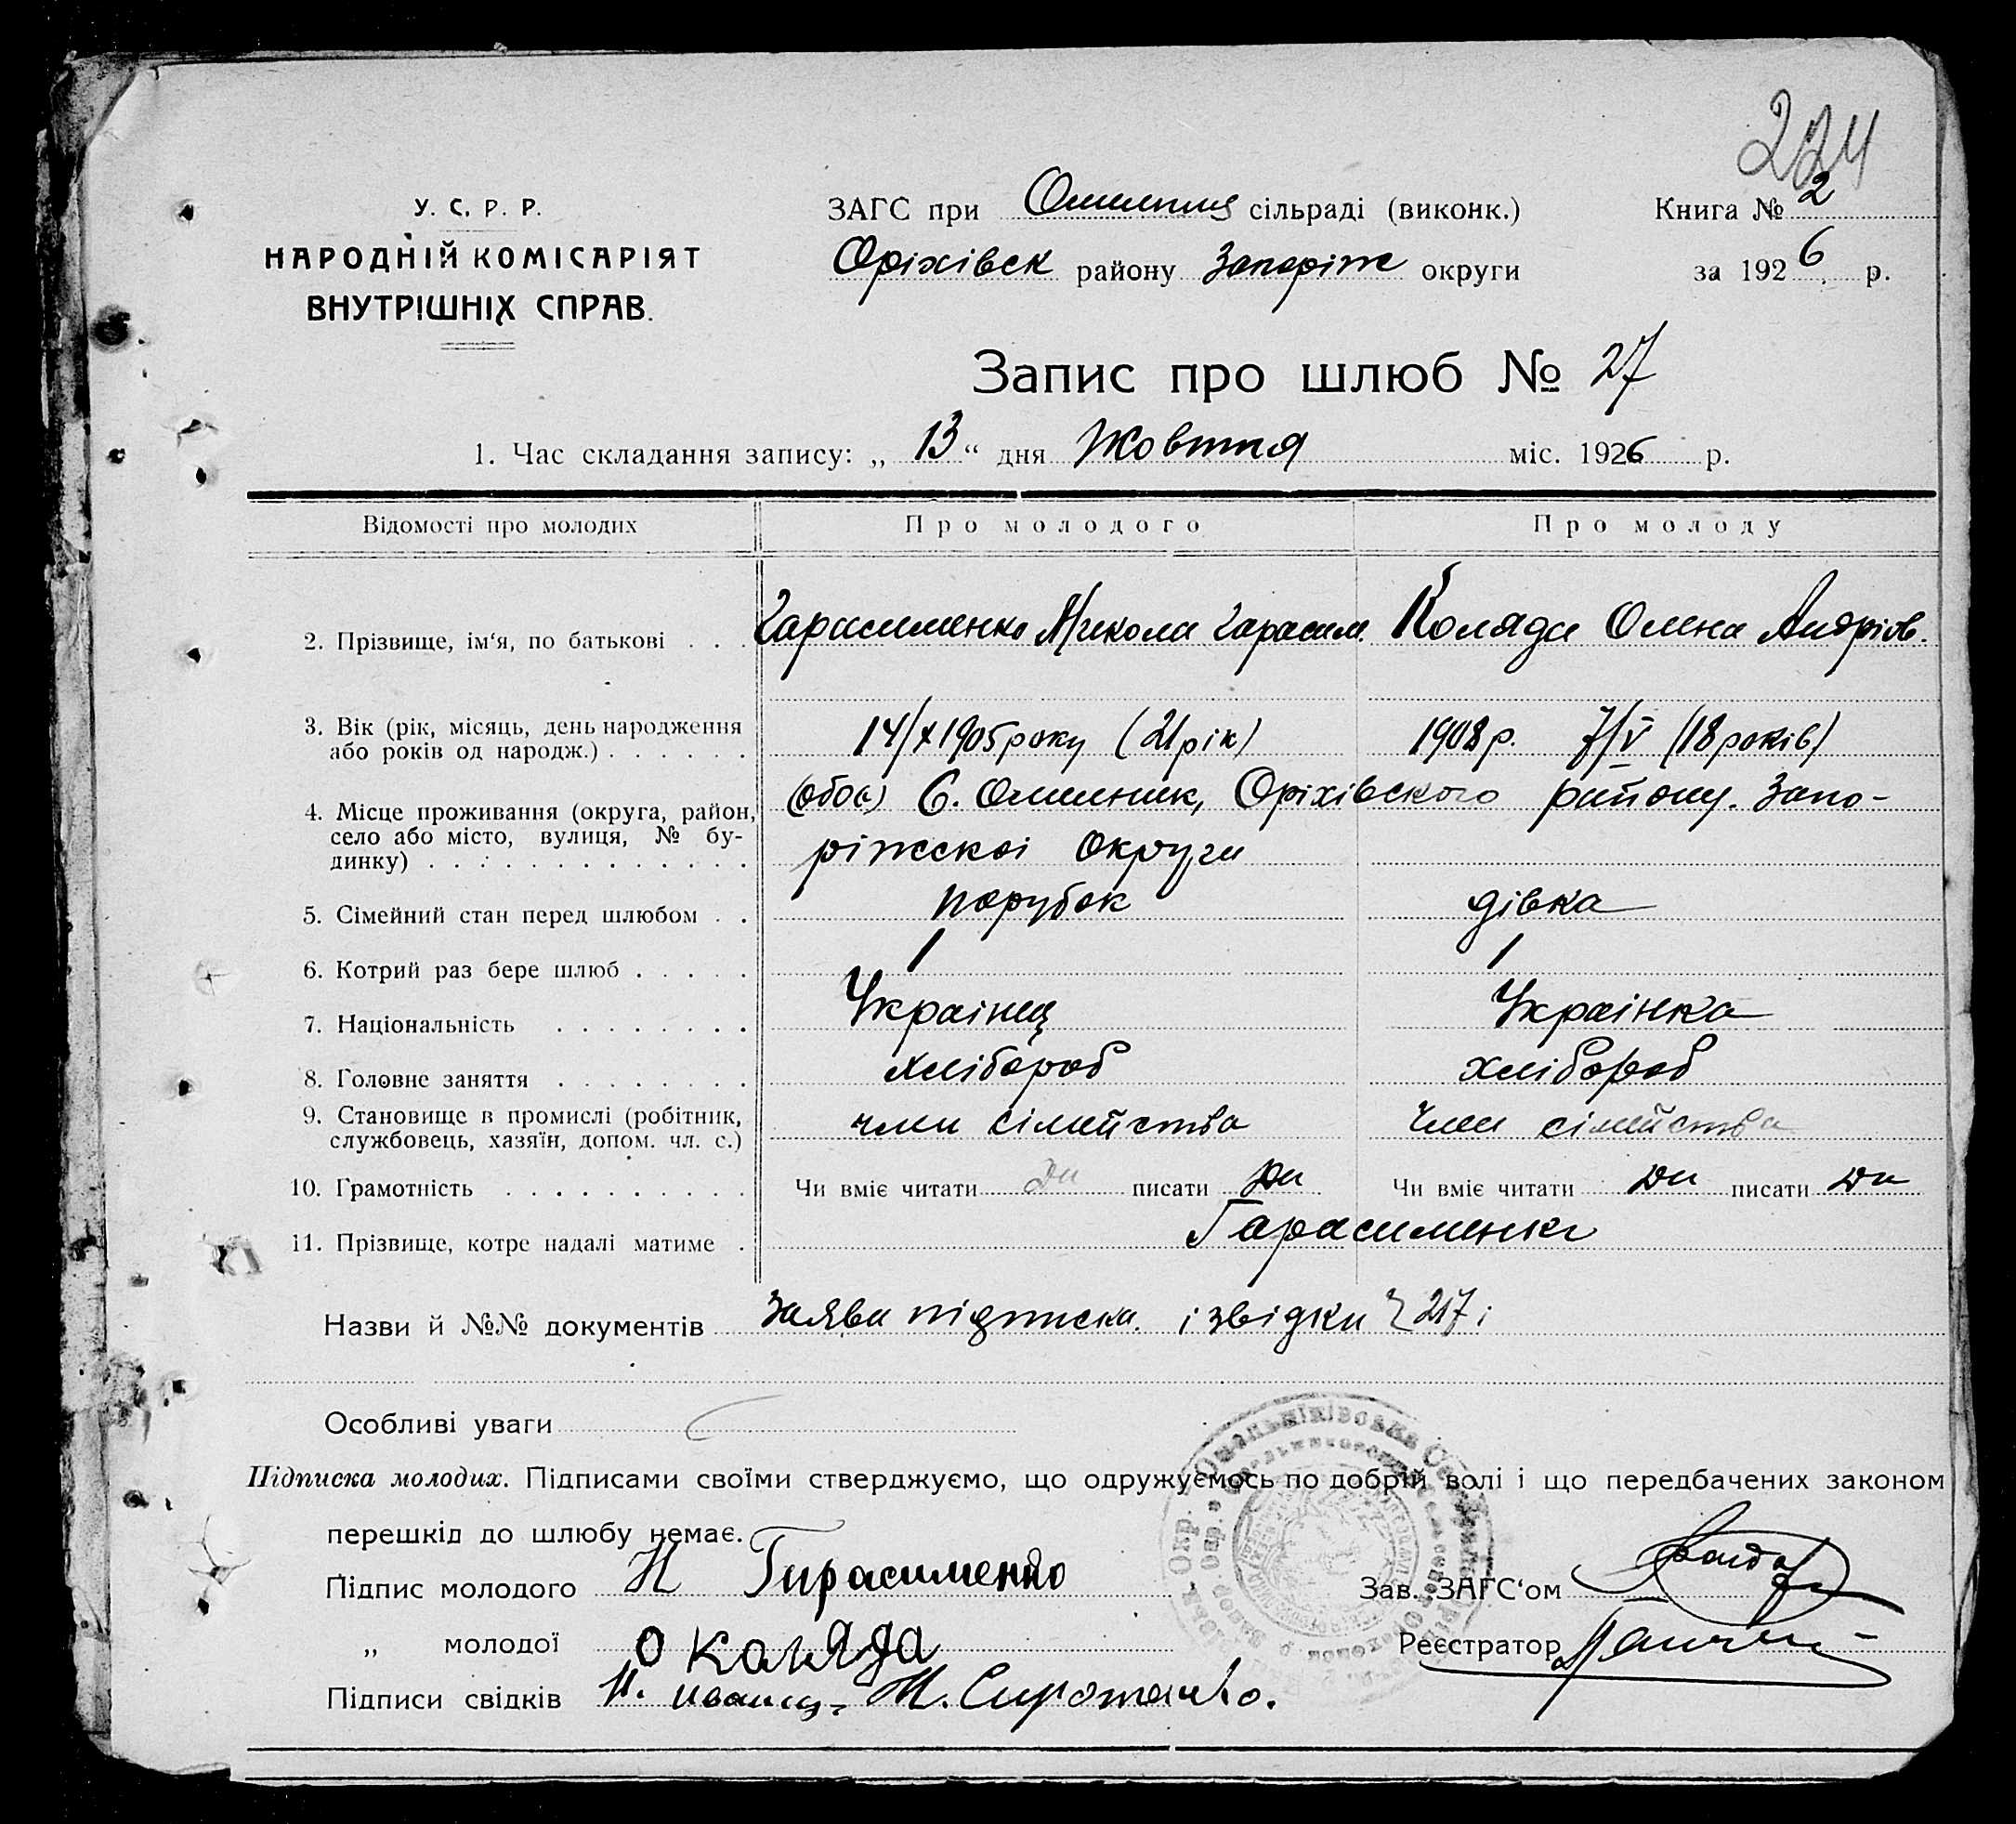 224
У. С. Р. Р.
НАРОДНІЙ КОМІСАРІЯТ
ВНУТРІШНІХ СПРАВ.
ЗАГС при Омельник сільраді (виконк.)
Книга № 2
Оріхівськ району Запоріж округи
за 1926 р.
Запис про шлюб № 27
1. Час складання запису: „ 13 “ дня Жовтня міс. 1926 р.
Відомості про молодих Про молодого Про молоду
2. Прізвище, ім‘я, по батькові . . . Гарасименко Микола Гарасим. Коляда Олена Андріів.
3. Вік (рік, місяць, день народження
або років од народж.) . . . . . . 14/X 1905 року (21 рік) 1908 р. 7/V (18 років)
4. Місце проживання (округа, район, (обоє) С. Омельник, Оріхівского району. Запо-
село або місто, вулиця, № бу-
динку) . . . . . . . . . . . . . ріжскоі Округи
5. Сімейний стан перед шлюбом . . парубок дівка
6. Котрий раз бере шлюб . . . . . 1 1
7. Національність . . . . . . . . Украінец Украінка
8. Головне заняття . . . . . . . . хлібороб хлібороб
9. Становище в промислі (робітник,
службовець, хазяїн, допом. чл. с.) член сімейства член сімейства
10. Грамотність . . . . . . . . . . Чи вміє читати Да писати Да Чи вміє читати Да писати Да
11. Прізвище, котре надалі матиме . Гарасименко
Назви й №№ документів Заява підписка і звідки 217 і
Особливі уваги
Підписка молодих. Підписами своїми стверджуємо, що одружуємось по добрій волі і що передбачених законом
перешкід до шлюбу немає.
Підпис молодого Н Гирасименко
Зав. ЗАГС‘ом
„ молодої О Каляда
Реєстратор
Підписи свідків М. Сиротенко.